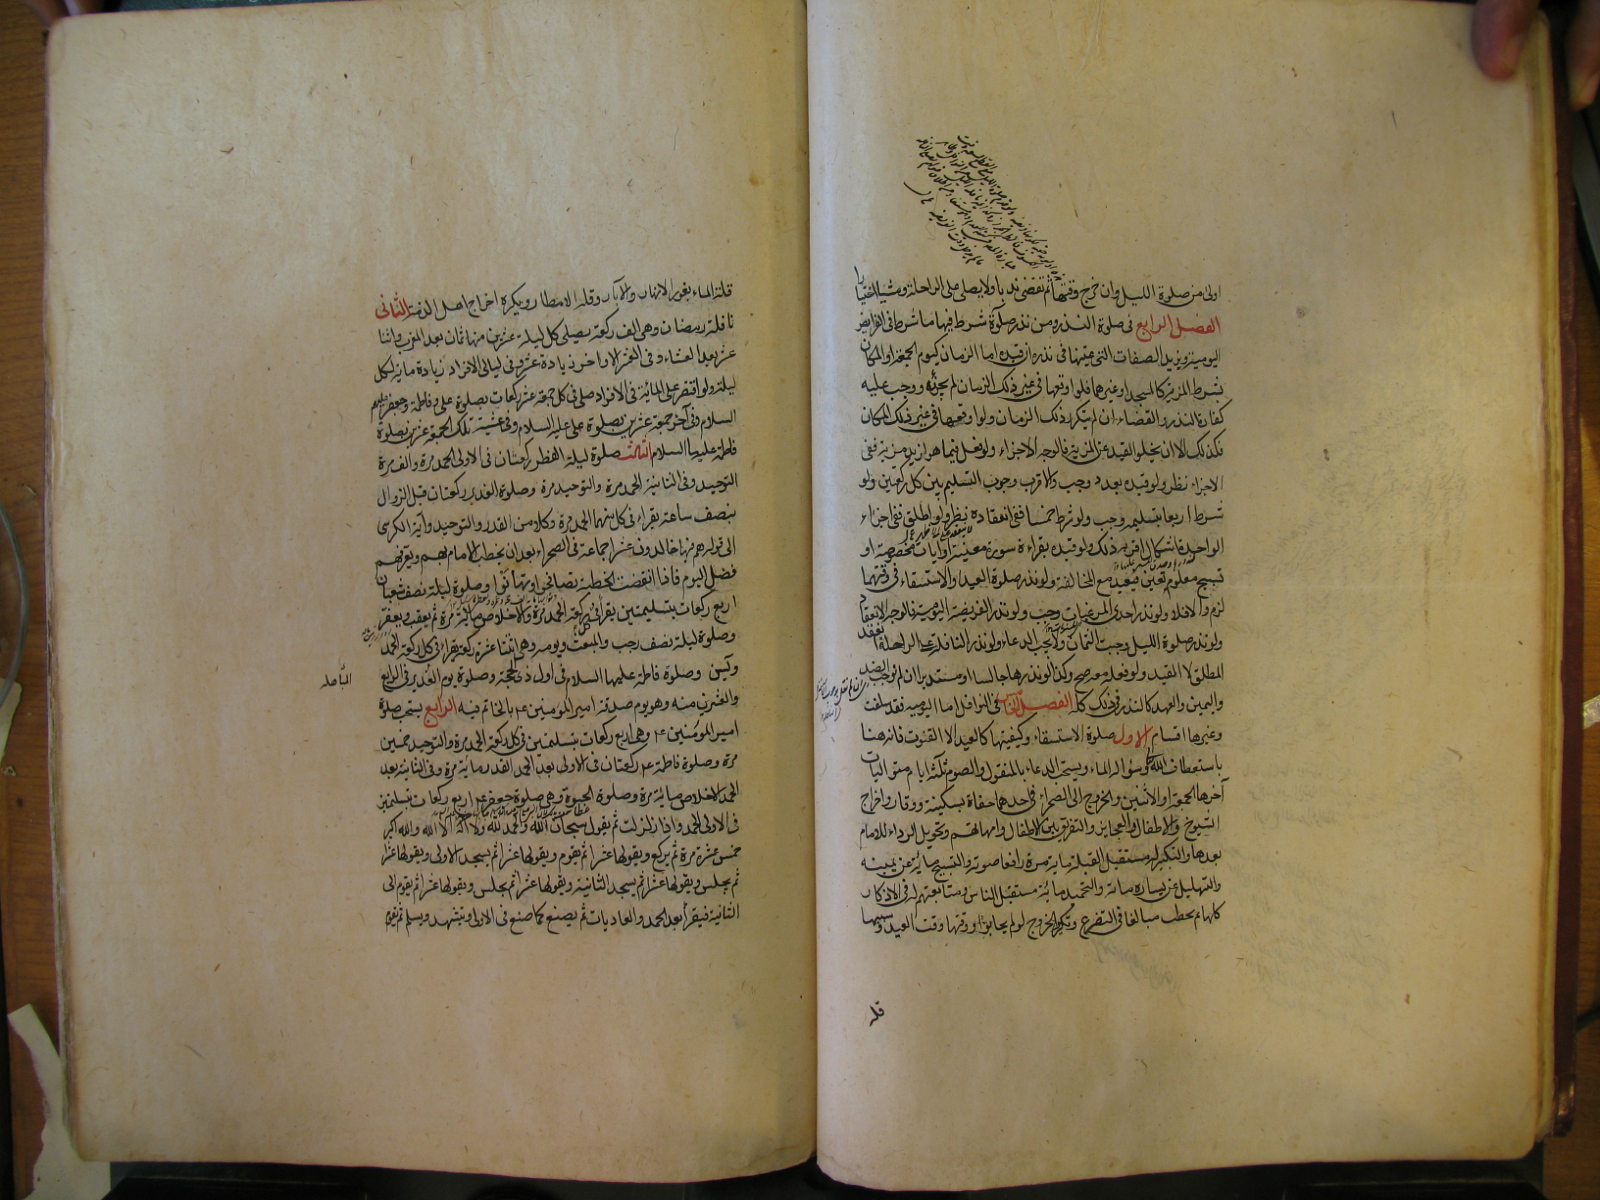 اولى من صلوة الليل وان خرج وقتها ثم تقضى ندبا ولا يصلى على الراحلة ومشيا اختيارا
الفصل الرابع فى صلوة النذر ومن نذر صلوة شرط فيها ما شرط فى الفرايض
اليومية ويزيد الصفات التى عينها فى نذره ان قيده اما الزمان كيوم الجمعة او المكان
بشرط المزية كالمسجد او غيرهما فلو اوقعها فى غير ذلك الزمان لم يجزئه ووجب عليه
كفارة النذر والقضاء ان لم يتكرر ذلك الزمان ولو اوقعها فى غير ذلك المكان
فكذلك الا ان يخلو القيد عن المزية فالوجه الاجزاء ولو فعل فيما هو ازيد مزية ففى
الاجزاء نظر ولو قيده بعدد وجب والاقرب وجوب التسليم بين كل ركعتين ولو
شرط اربعا بتسليمة وجب ولو شرط خمسا ففى انعقاده نظر ولو اطلق ففى اجزاء
الواحدة اشكال اقربه ذلك ولو قيده بقراءة سورة معينة او ايات مخصوصة او
تسبيح معلوم تعين فيعيد مع المخالفة ولو نذر صلوة العيد او الاستسقاء فى وقتها
لزم والا فلا ولو نذر احدى المرغبات وجب ولو نذر الفريضة اليومية فالوجه الانعقاد
ولو نذر صلوة الليل وجبت الثمان ولا يجب الدعاء ولو نذر النافلة على الراحلة انعقد
المطلق لا القيد ولو فعله معه صح وكذا لو نذرها جالسا او مستدبرا ان لم نوجب الضد
واليمين والعهد كالنذر فى ذلك كله الفصل الخامس فى النوافل اما اليومية فقد سلفت
وغيرها اقسام الاول صلوة الاستسقاء وكيفيتها كالعيد الا القنوت فانه هنا
باستعطاف الله وسؤاله الماء ويستحب الدعاء بالمنقول والصوم ثلثة ايام متواليات
آخرها الجمعة او الاثنين والخروج الى الصحراء فى احدهما حفاة بسكينة ووقار واخراج
الشيوخ والاطفال والعجايز والتفريق بين الاطفال وامهاتهم وتحويل الرداء للامام
بعدها والتكبير له مستقبل القبلة ماية مرة رافعا صوته والتسبيح ماية عن يمينه
والتهليل عن يساره ماية والتحميد ماية مستقبل الناس ومتابعتهم له فى الاذكار
كلها ثم يخطب مبالغا فى التضرع وتكرير الخروج لو لم يجابوا ووقتها وقت العيد وسببها
قلة
قلة الماء بغور الانهار والآبار وقلة الامطار ويكره اخراج اهل الذمة الثانى
نافلة رمضان وهى الف ركعة يصلى كل ليلة عشرين منها ثمان بعد المغرب واثنا
عشر بعد العشاء وفى العشر الاواخر زيادة عشر وفى ليالى الافراد زيادة ماية لكل
ليلة ولو اقتصر على الماية فى الافراد صلى فى كل جمعة عشر ركعات بصلوة على وفاطمة وجعفر عليهم
السلام وفى آخر جمعة عشرين بصلوة على عليه السلام وفى عشية تلك الجمعة عشرين بصلوة
فاطمة عليها السلام الثالث صلوة ليلة الفطر ركعتان فى الاولى الحمد مرة والف مرة
التوحيد وفى الثانية الحمد مرة والتوحيد مرة وصلوة الغدير ركعتان قبل الزوال
بنصف ساعة يقراء فى كل منهما الحمد مرة وكلا من القدر والتوحيد وآية الكرسى
الى قوله هم فيها خالدون عشرا جماعة فى الصحراء بعد ان يخطب الامام بهم ويعرفهم
فضل اليوم فاذا انقضت الخطبة تصافحوا وتهانوا وصلوة ليلة نصف شعبان
اربع ركعات بتسليمتين يقرأ فى كل ركعة الحمد مرة والاخلاص ماية مرة ثم يعقب ويعفر
وصلوة ليلة نصف رجب والمبعث ويومه وهى اثنتا عشرة ركعة يقراء فى كل ركعة الحمد
ويس وصلوة فاطمة عليها السلام فى اول ذى الحجة وصلوة يوم الغدير فى الرابع
المباهلة
والعشرين منه وهو يوم صدقة امير المؤمنين ع بالخاتم فيه الرابع يستحب صلوة
امير المؤمنين ع وهى اربع ركعات بتسليمتين فى كل ركعة الحمد مرة والتوحيد خمسين
مرة وصلوة فاطمة ع ركعتان فى الاولى بعد الحمد القدر ماية مرة وفى الثانية بعد
الحمد الاخلاص ماية مرة وصلوة الحبوة وهى صلوة جعفر ع اربع ركعات بتسليمتين
فى الاولى الحمد واذا زلزلت ثم يقول سبحان الله والحمد لله ولا اله الا الله والله اكبر
خمس عشرة مرة ثم يركع ويقولها عشرا ثم يقوم ويقولها عشرا ثم يسجد الاولى ويقولها عشرا
ثم يجلس ويقولها عشرا ثم يسجد الثانية ويقولها عشرا ثم يجلس ويقولها عشرا ثم يقوم الى
الثانية فيقرأ بعد الحمد والعاديات ثم يصنع كما صنع فى الاولى ويتشهد ويسلم ثم يقوم